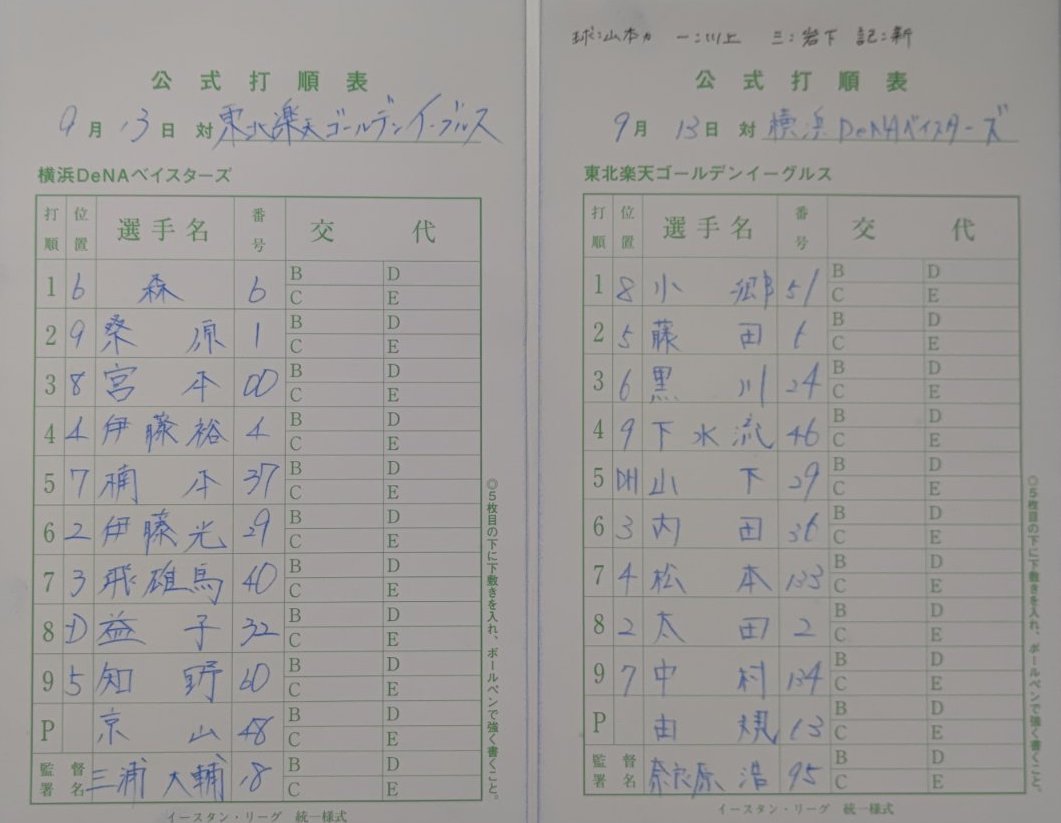 公式打順表
9月13日 対 東北楽天ゴールデンイーグルス
横浜DeNAベイスターズ
打順 位置 選手名 番号 交代
1 6 森 6 B D C E
2 9 桑原 1 B D C E
3 8 宮本 00 B D C E
4 4 伊藤裕 4 B D C E
5 7 楠本 37 B D C E
6 2 伊藤光 29 B D C E
7 3 飛雄馬 40 B D C E
8 D 益子 32 B D C E
9 5 知野 60 B D C E
P 京山 48 B D C E
監督署名 三浦大輔 18 B D C E
◎5枚目の下に下敷きを入れ、ボールペンで強く書くこと。
イースタン・リーグ 統一様式
球:山本力 一:川上 三:岩下 記:新
公式打順表
9月13日 対 横浜DeNAベイスターズ
東北楽天ゴールデンイーグルス
打順 位置 選手名 番号 交代
1 8 小郷 51 B D C E
2 5 藤田 6 B D C E
3 6 黒川 24 B D C E
4 9 下水流 46 B D C E
5 DH 山下 29 B D C E
6 3 内田 36 B D C E
7 4 松本 133 B D C E
8 2 太田 2 B D C E
9 7 中村 134 B D C E
P 由規 63 B D C E
監督署名 奈良原浩 95 B D C E
◎5枚目の下に下敷きを入れ、ボールペンで強く書くこと。
イースタン・リーグ 統一様式